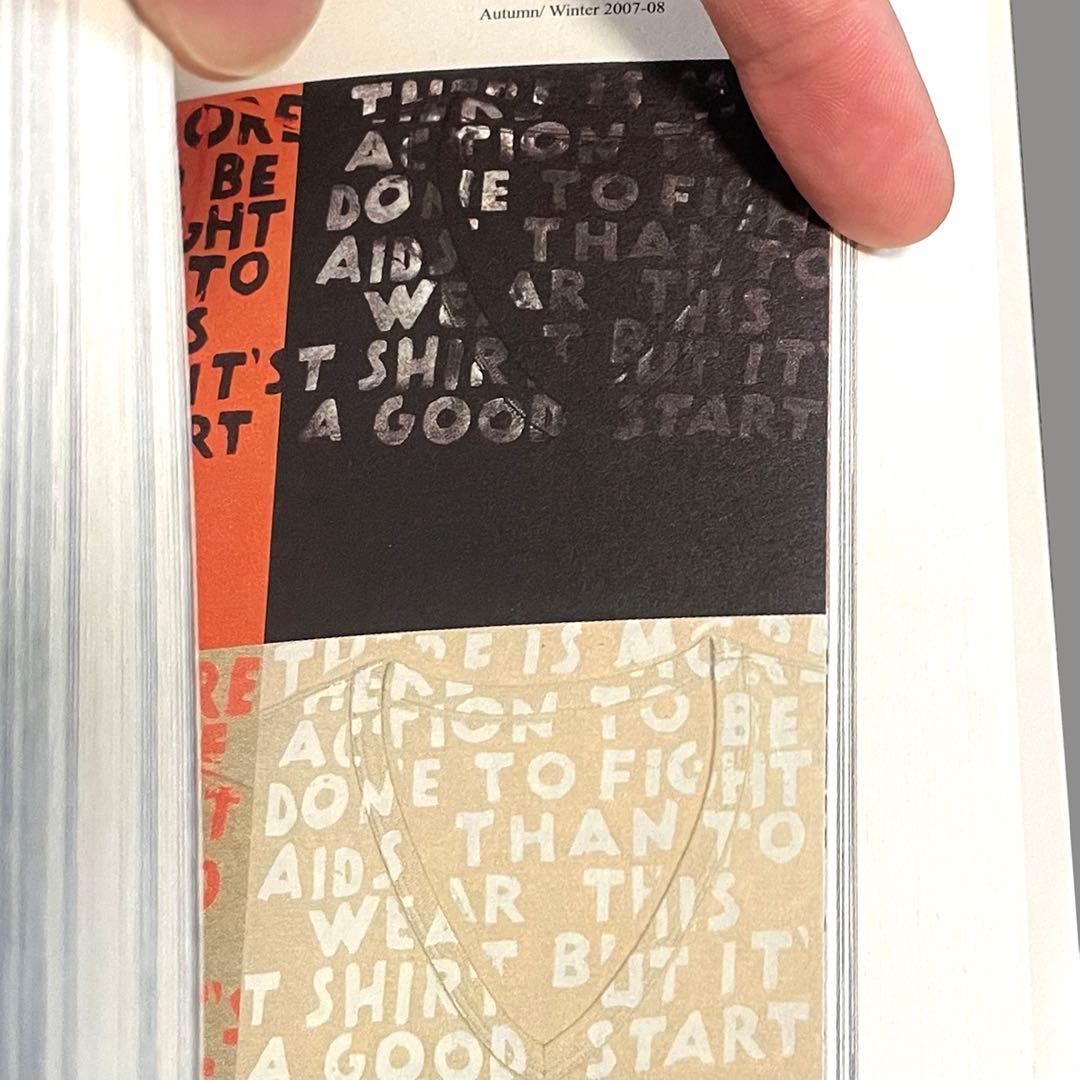 Autumn/ Winter 2007-08
ORE
BE
GHT
TO
S
IT'S
RT
THERE IS
ACTION TO
DONE TO FIGH
AIDS THAN TO
WEAR THIS
T SHIRT BUT IT'
A GOOD START
RE
E
T
O
'S
THERE IS MORE
ACTION TO BE
DONE TO FIGHT
AIDS THAN TO
WEAR THIS
T SHIRT BUT IT'
A GOOD START